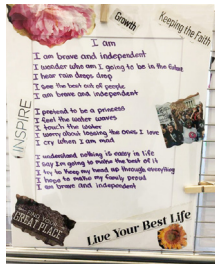 Growth
Keeping the Faith
I am
I am brave and independent
I wonder who am I going to be in the future
I hear rain drops drop
I see the best out of people
I am brave and independent
I pretend to be a princess
I feel the water waves
I touch the water
I worry about losing the ones I love
I cry when I am mad
I understand nothing is easy in life
I say I'm going to make the best of it
I try to keep my head up through everything
I hope to make my family proud
I am brave and independent
INSPIRE
GREAT PLACE
Live Your Best Life